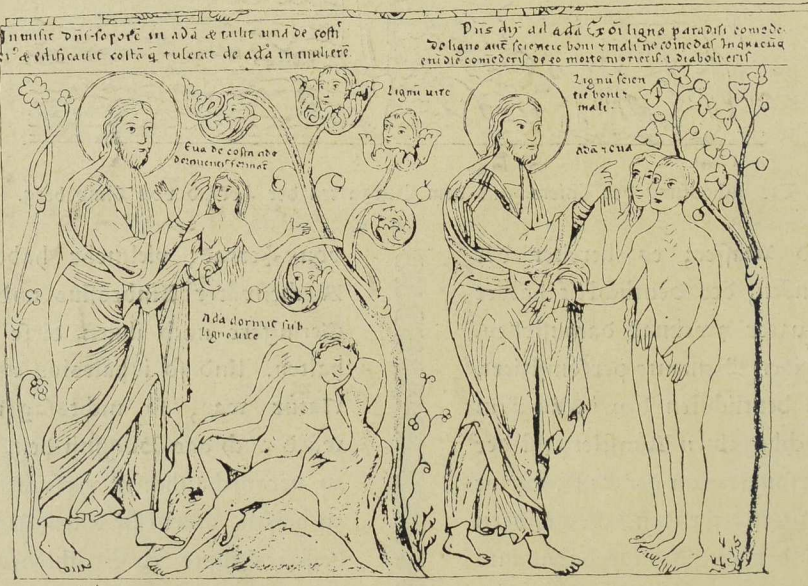 Inmisit dns sopore in adā & tulit unā de costis
ei' & edificauit costā q̄ tulerat de adā in mulierē.
Dn̄s dix̄ ad adā Ex oī ligno paradisi comede.
De ligno aut̄ scientie boni ⁊ mali ne comedas In quacūq
enī die comederis de eo morte morieris. i diaboli eris
Lignū uite
Eua de costa ade
dormientis formať
Ada dormit sub
ligno uite.
Lignū scien
tie boni ⁊
mali.
adā ⁊ eua